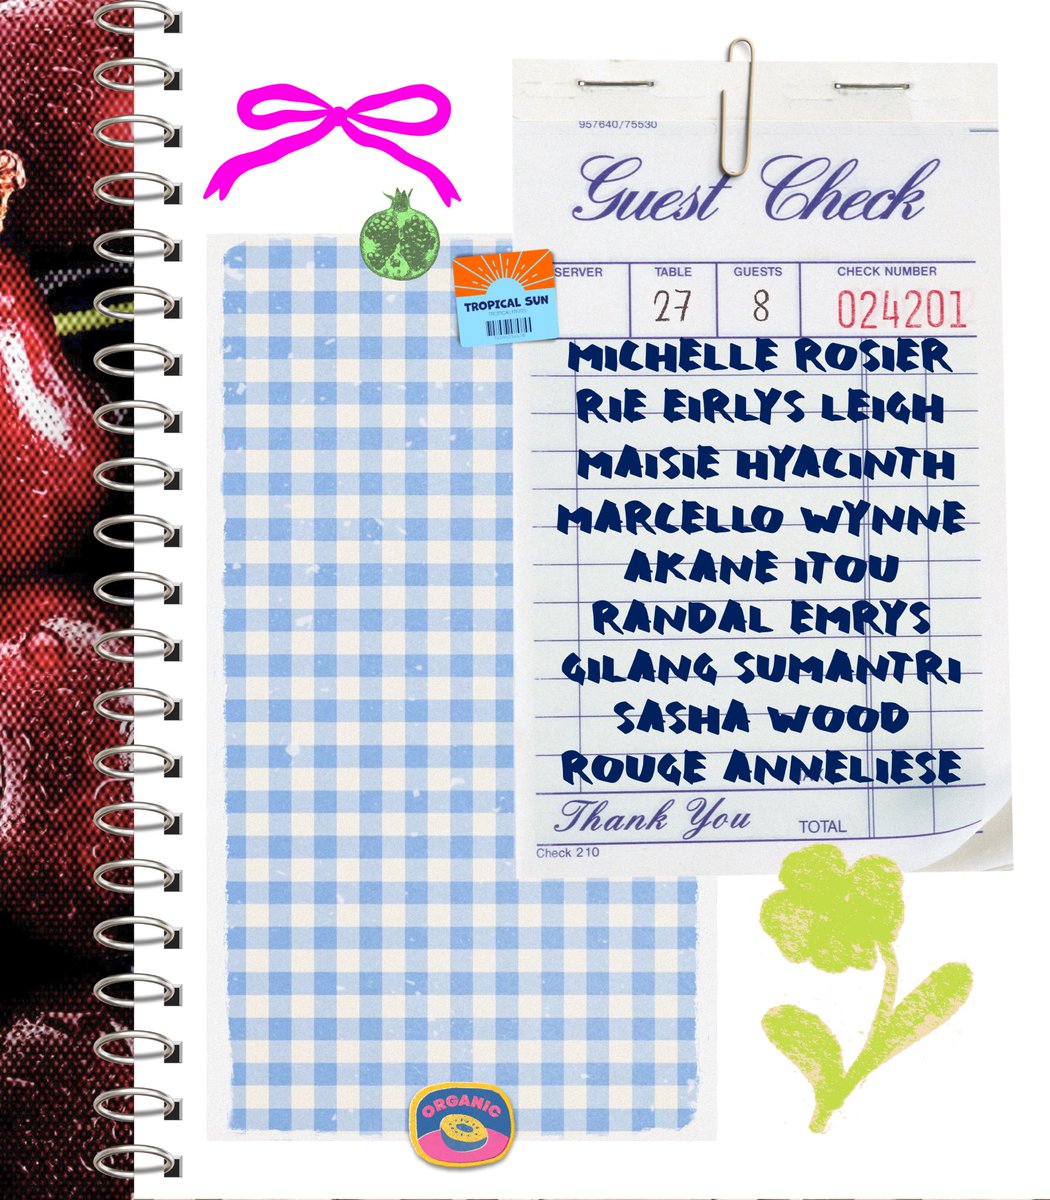 957640/75530
Guest Check
SERVER TABLE GUESTS CHECK NUMBER
27 8 024201
TROPICAL SUN
MICHELLE ROSIER
RIE EIRLYS LEIGH
MAISIE HYACINTH
MARCELLO WYNNE
AKANE ITOU
RANDAL EMRYS
GILANG SUMANTRI
SASHA WOOD
ROUGE ANNELIESE
Thank You TOTAL
Check 210
ORGANIC